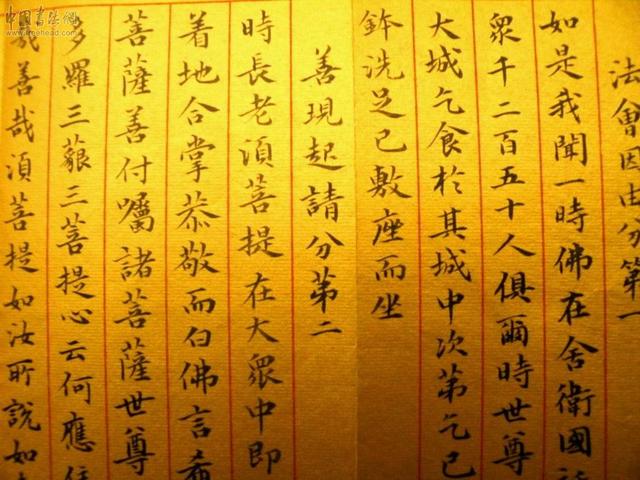 法會因由分第一
如是我聞一時佛在舍衛國
眾千二百五十人俱爾時世尊
大城乞食於其城中次第乞已
鉢洗足已敷座而坐
善現起請分第二
時長老須菩提在大眾中即
着地合掌恭敬而白佛言希
菩薩善付囑諸菩薩世尊
多羅三藐三菩提心云何應住
哉善哉須菩提如汝所說如
中国书法網
www.freehead.com